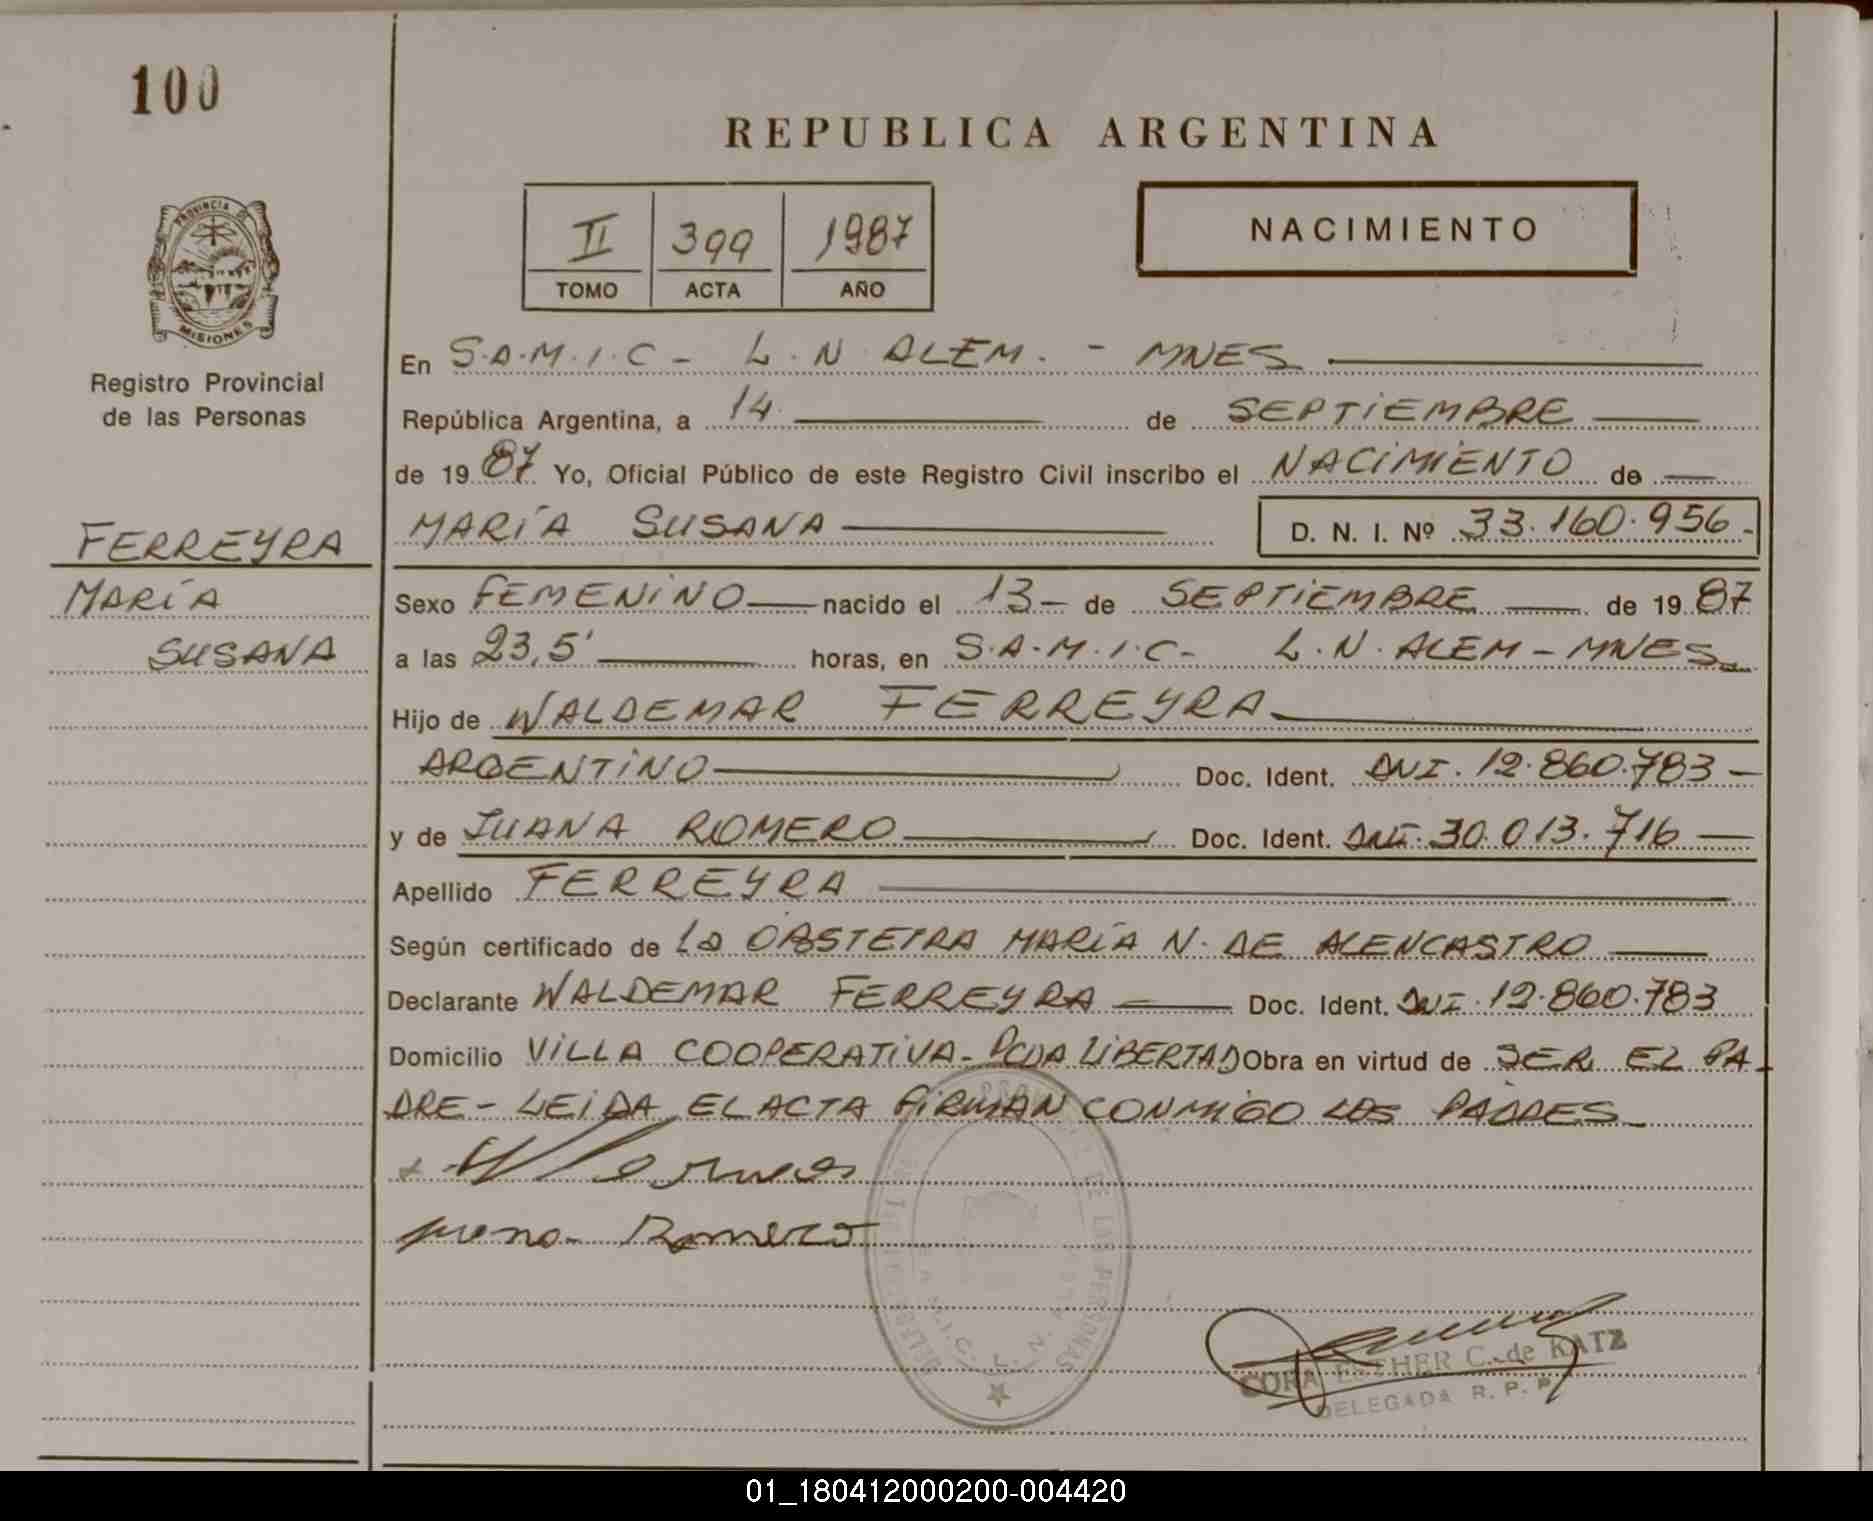 100
REPUBLICA ARGENTINA
PROVINCIA DE
MISIONES
Registro Provincial
de las Personas
II 399 1987
TOMO ACTA AÑO
NACIMIENTO
En S.A.M.I.C - L.N ALEM. - MNES
República Argentina, a 14 de SEPTIEMBRE
de 1987 Yo, Oficial Público de este Registro Civil inscribo el NACIMIENTO de
MARÍA SUSANA D. N. I. Nº 33.160.956.-
FERREYRA
MARÍA
SUSANA
Sexo FEMENINO nacido el 13- de SEPTIEMBRE de 1987
a las 23,5' horas, en S.A.M.I.C- L.N. ALEM - MNES
Hijo de WALDEMAR FERREYRA
ARGENTINO Doc. Ident. DNI. 12.860.783 -
y de JUANA ROMERO Doc. Ident. DNI. 30.013.716 -
Apellido FERREYRA
Según certificado de LA OBSTETRA MARÍA N. DE ALENCASTRO
Declarante WALDEMAR FERREYRA Doc. Ident. DNI. 12.860.783
Domicilio VILLA COOPERATIVA - PCDA LIBERTAD Obra en virtud de SER EL PA-
DRE - LEIDA EL ACTA FIRMAN CONMIGO LOS PADRES
Juana Romero
DE LAS PERSONAS
S.A.M.I.C. L. N. ALEM
CORA ESTHER C. de KATZ
DELEGADA R. P. P.
01_180412000200-004420